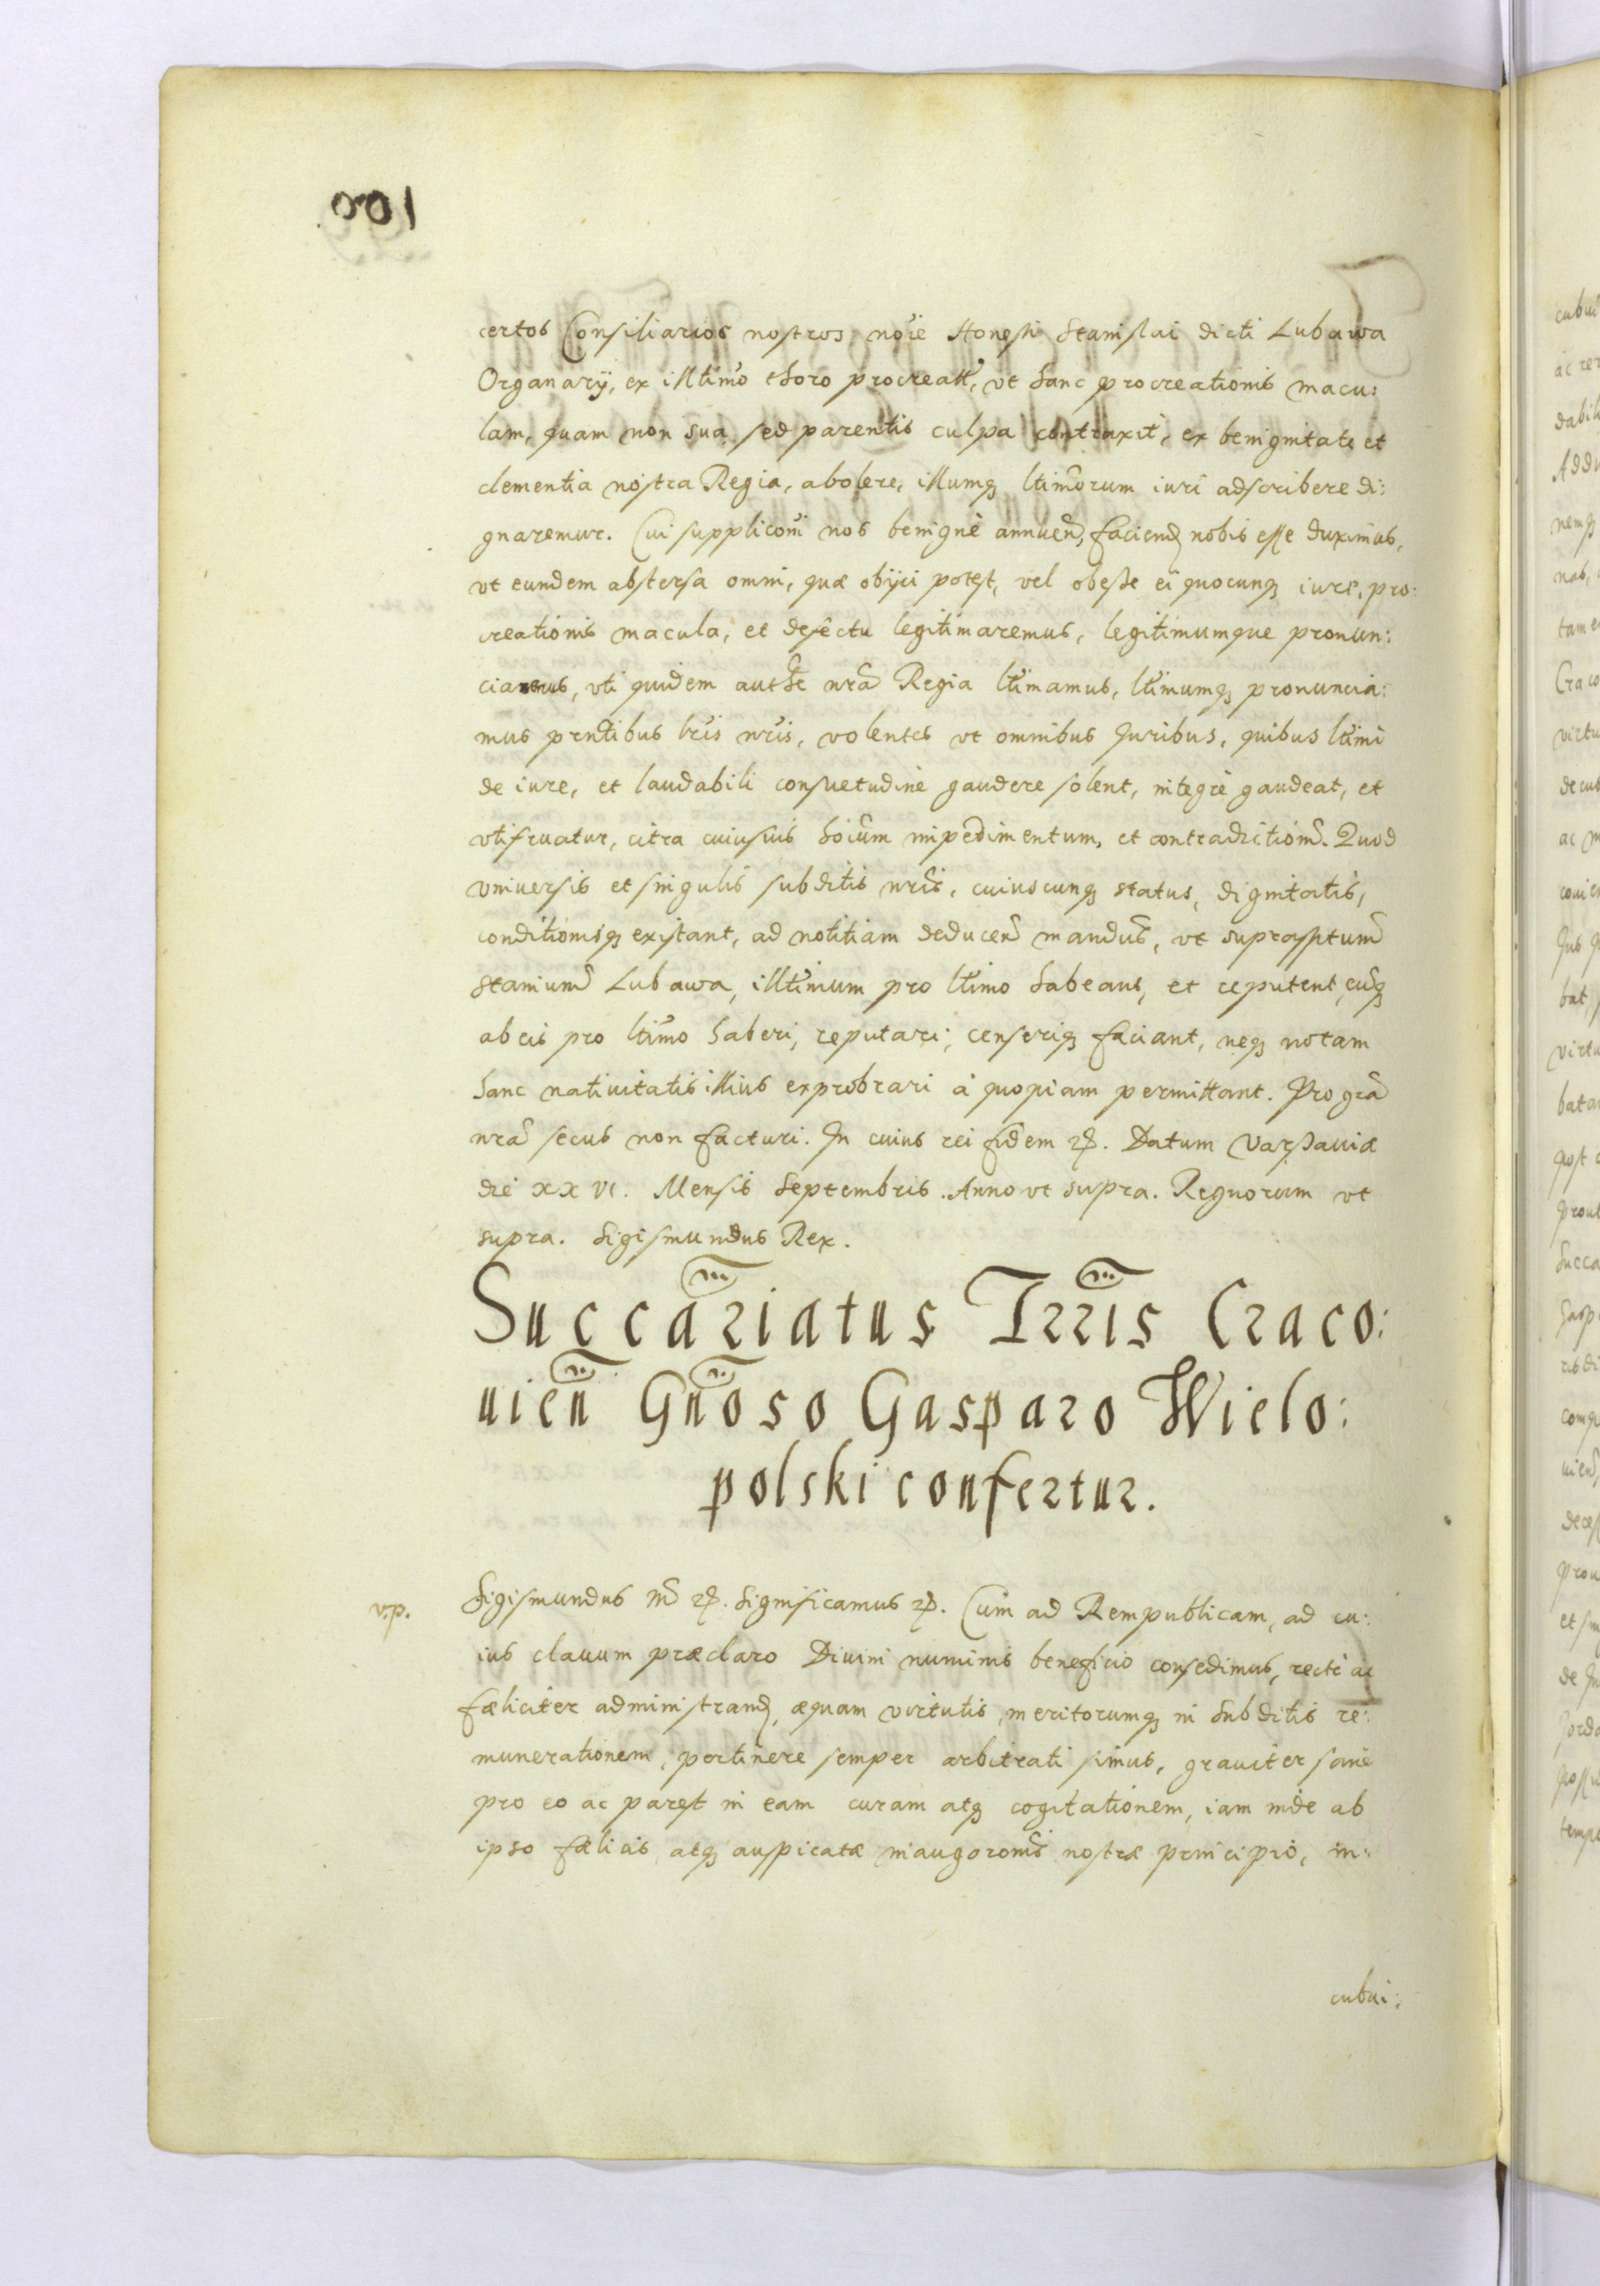 100
certos Consiliarios nostros noie Honesti Stanislai dicti Lubawa
Organarij, ex illtimo thoro procreati, vt hanc procreationis macu:
lam, quam non sua sed parentis culpa contraxit, ex benignitate et
clementia nostra Regia, abolere, illumq ltimorum iuri adscribere di:
gnaremur. Cui suppliconi nos benignè annuen, faciend nobis esse duximus,
vt eundem abstersa omni, quæ obijci potest, vel obesse ei quocunq iure, pro:
creationis macula, et defectu legitimaremus, legitimumque pronun:
ciaremus, vti quidem authte nra Regia ltimamus, ltimumq pronuncia:
mus prntibus lris nris, volentes vt omnibus Juribus, quibus ltimi
de iure, et laudabili consuetudine gaudere solent, integrè gaudeat, et
vtifruatur, citra cuiusuis hoium impedimentum, et contradictiom. Quod
vniuersis et singulis subditis nris, cuiuscunq status, dignitatis,
conditionisq existant, ad notitiam deducen mandus, vt suprasptum
Stanium Lubawa, illtimum pro ltimo habeant, et reputent, eumq
ab eis pro ltimo haberi, reputari, censeriq faciant, neq notam
hanc natiuitatis illius exprobrari à quopiam permittant. Pro gra
nra secus non facturi. In cuius rei fidem etc. Datum Varsauiæ
die XXVI. Mensis Septembris. Anno vt supra. Regnorum vt
supra. Sigismundus Rex.
Succariatus Trris Craco:
uien Gnoso Gasparo Wielo:
polski confertur.
v.p.
Sigismundus 3us etc. Significamus etc. Cum ad Rempublicam, ad cu:
ius clauum præclaro Diuini numinis beneficio consedimus, rectè ac
fæliciter administrand, æquam virtutis, meritorumq in Subditis re:
munerationem, pertinere semper arbitrati simus, grauiter sane
pro eo ac par est in eam curam atq cogitationem, iam inde ab
ipso fælicis, atq auspicatæ inaugoronis nostræ principio, in:
cubui: